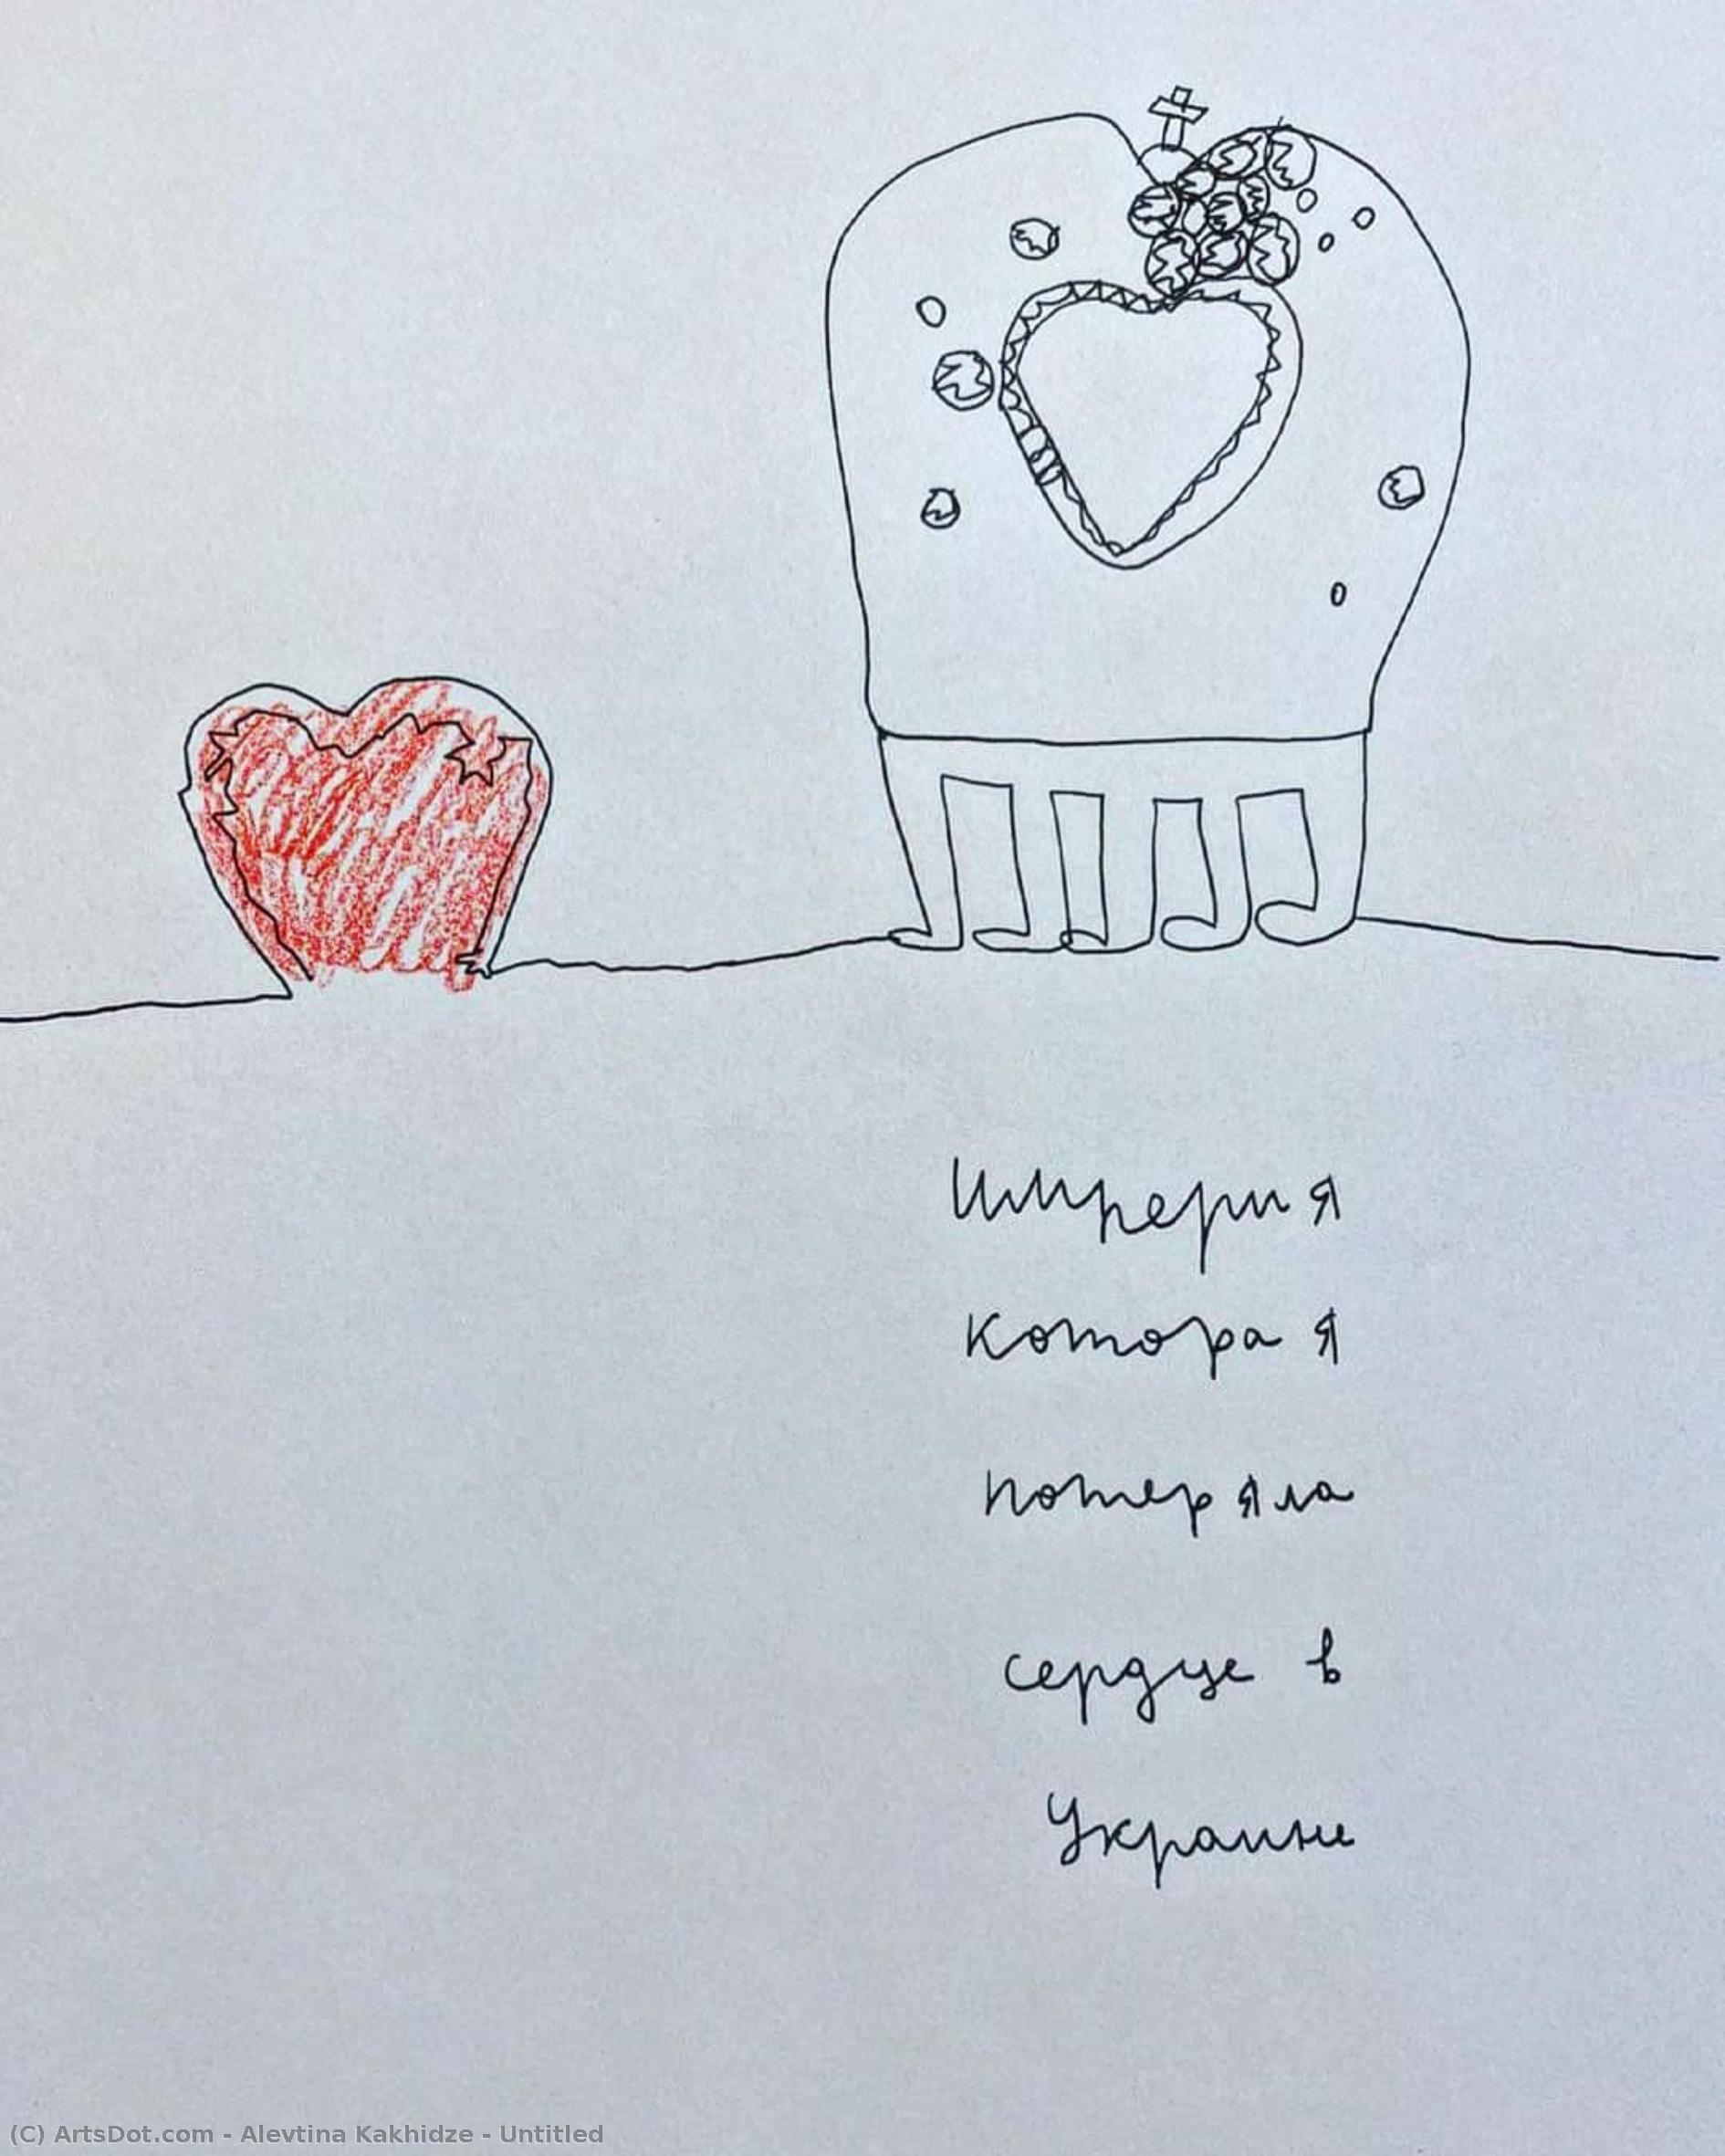 Империя
которая
потеряла
сердце в
Украине
(C) ArtsDot.com - Alevtina Kakhidze - Untitled